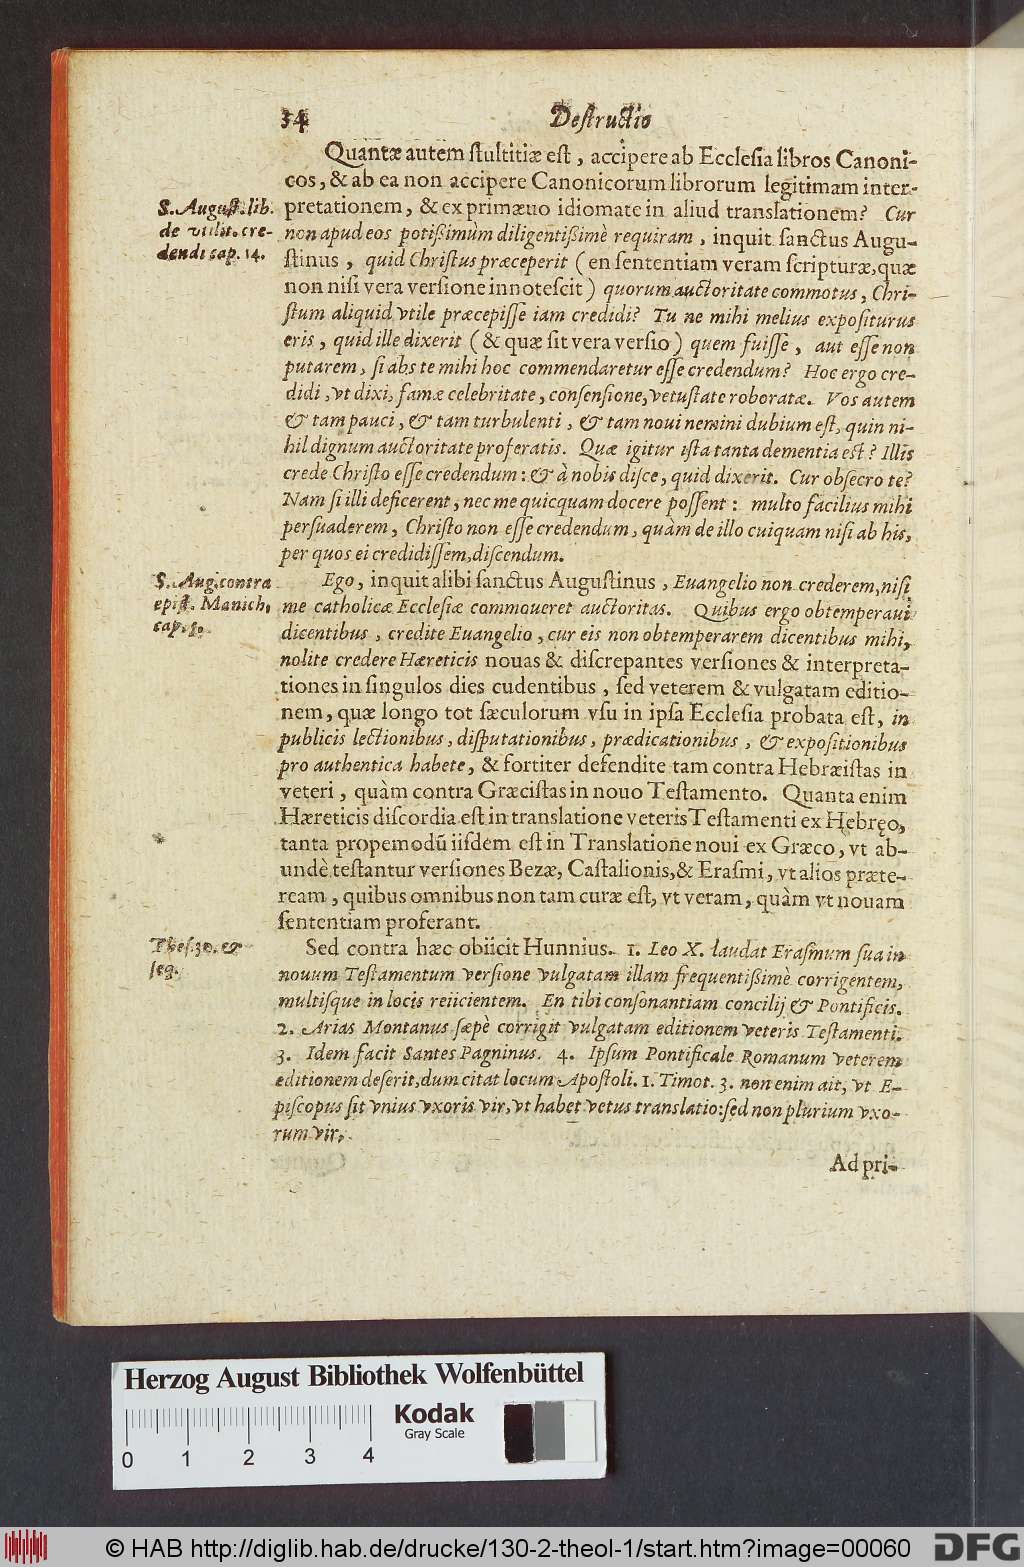 34 Destructio
Quantæ autem stultitiæ est, accipere ab Ecclesia libros Canoni-
cos, & ab ea non accipere Canonicorum librorum legitimam inter-
S. August. lib.
de vtilit. cre-
dendi cap. 14.
pretationem, & ex primæuo idiomate in aliud translationem? Cur
non apud eos potißimùm diligentißimè requiram, inquit sanctus Augu-
stinus, quid Christus præceperit (en sententiam veram scripturæ, quæ
non nisi vera versione innotescit) quorum auctoritate commotus, Chri-
stum aliquid vtile præcepisse iam credidi? Tu ne mihi melius expositurus
eris, quid ille dixerit (& quæ sit vera versio) quem fuisse, aut esse non
putarem, si abs te mihi hoc commendaretur esse credendum? Hoc ergo cre-
didi, vt dixi, famæ celebritate, consensione, vetustate roboratæ. Vos autem
& tam pauci, & tam turbulenti, & tam noui nemini dubium est, quin ni-
hil dignum auctoritate proferatis. Quæ igitur ista tanta dementia est? Illis
crede Christo esse credendum: & à nobis disce, quid dixerit. Cur obsecro te?
Nam si illi deficerent, nec me quicquam docere possent: multo facilius mihi
persuaderem, Christo non esse credendum, quàm de illo cuiquam nisi ab his,
per quos ei credidissem, discendum.
S. Aug. contra
epist. Manich.
cap. 5.
Ego, inquit alibi sanctus Augustinus, Euangelio non crederem, nisi
me catholicæ Ecclesiæ commoueret auctoritas. Quibus ergo obtemperaui
dicentibus, credite Euangelio, cur eis non obtemperarem dicentibus mihi,
nolite credere Hæreticis nouas & discrepantes versiones & interpreta-
tiones in singulos dies cudentibus, sed veterem & vulgatam editio-
nem, quæ longo tot sæculorum vsu in ipsa Ecclesia probata est, in
publicis lectionibus, disputationibus, prædicationibus, & expositionibus
pro authentica habete, & fortiter defendite tam contra Hebræistas in
veteri, quàm contra Græcistas in nouo Testamento. Quanta enim
Hæreticis discordia est in translatione veteris Testamenti ex Hebręo,
tanta propemodũ iisdem est in Translatione noui ex Græco, vt ab-
undè testantur versiones Bezæ, Castalionis, & Erasmi, vt alios præte-
ream, quibus omnibus non tam curæ est, vt veram, quàm vt nouam
sententiam proferant.
Thes. 30. &
seq.
Sed contra hæc obiicit Hunnius. 1. Leo X. laudat Erasmum sua in
nouum Testamentum versione vulgatam illam frequentißimè corrigentem,
multisque in locis reiicientem. En tibi consonantiam concilij & Pontificis.
2. Arias Montanus sæpè corrigit vulgatam editionem veteris Testamenti.
3. Idem facit Santes Pagninus. 4. Ipsum Pontificale Romanum veterem
editionem deserit, dum citat locum Apostoli. 1. Timot. 3. non enim ait, vt E-
piscopus sit vnius vxoris vir, vt habet vetus translatio: sed non plurium vxo-
rum vir.
Ad pri-
Herzog August Bibliothek Wolfenbüttel
Kodak
Gray Scale
0 1 2 3 4
© HAB http://diglib.hab.de/drucke/130-2-theol-1/start.htm?image=00060
DFG